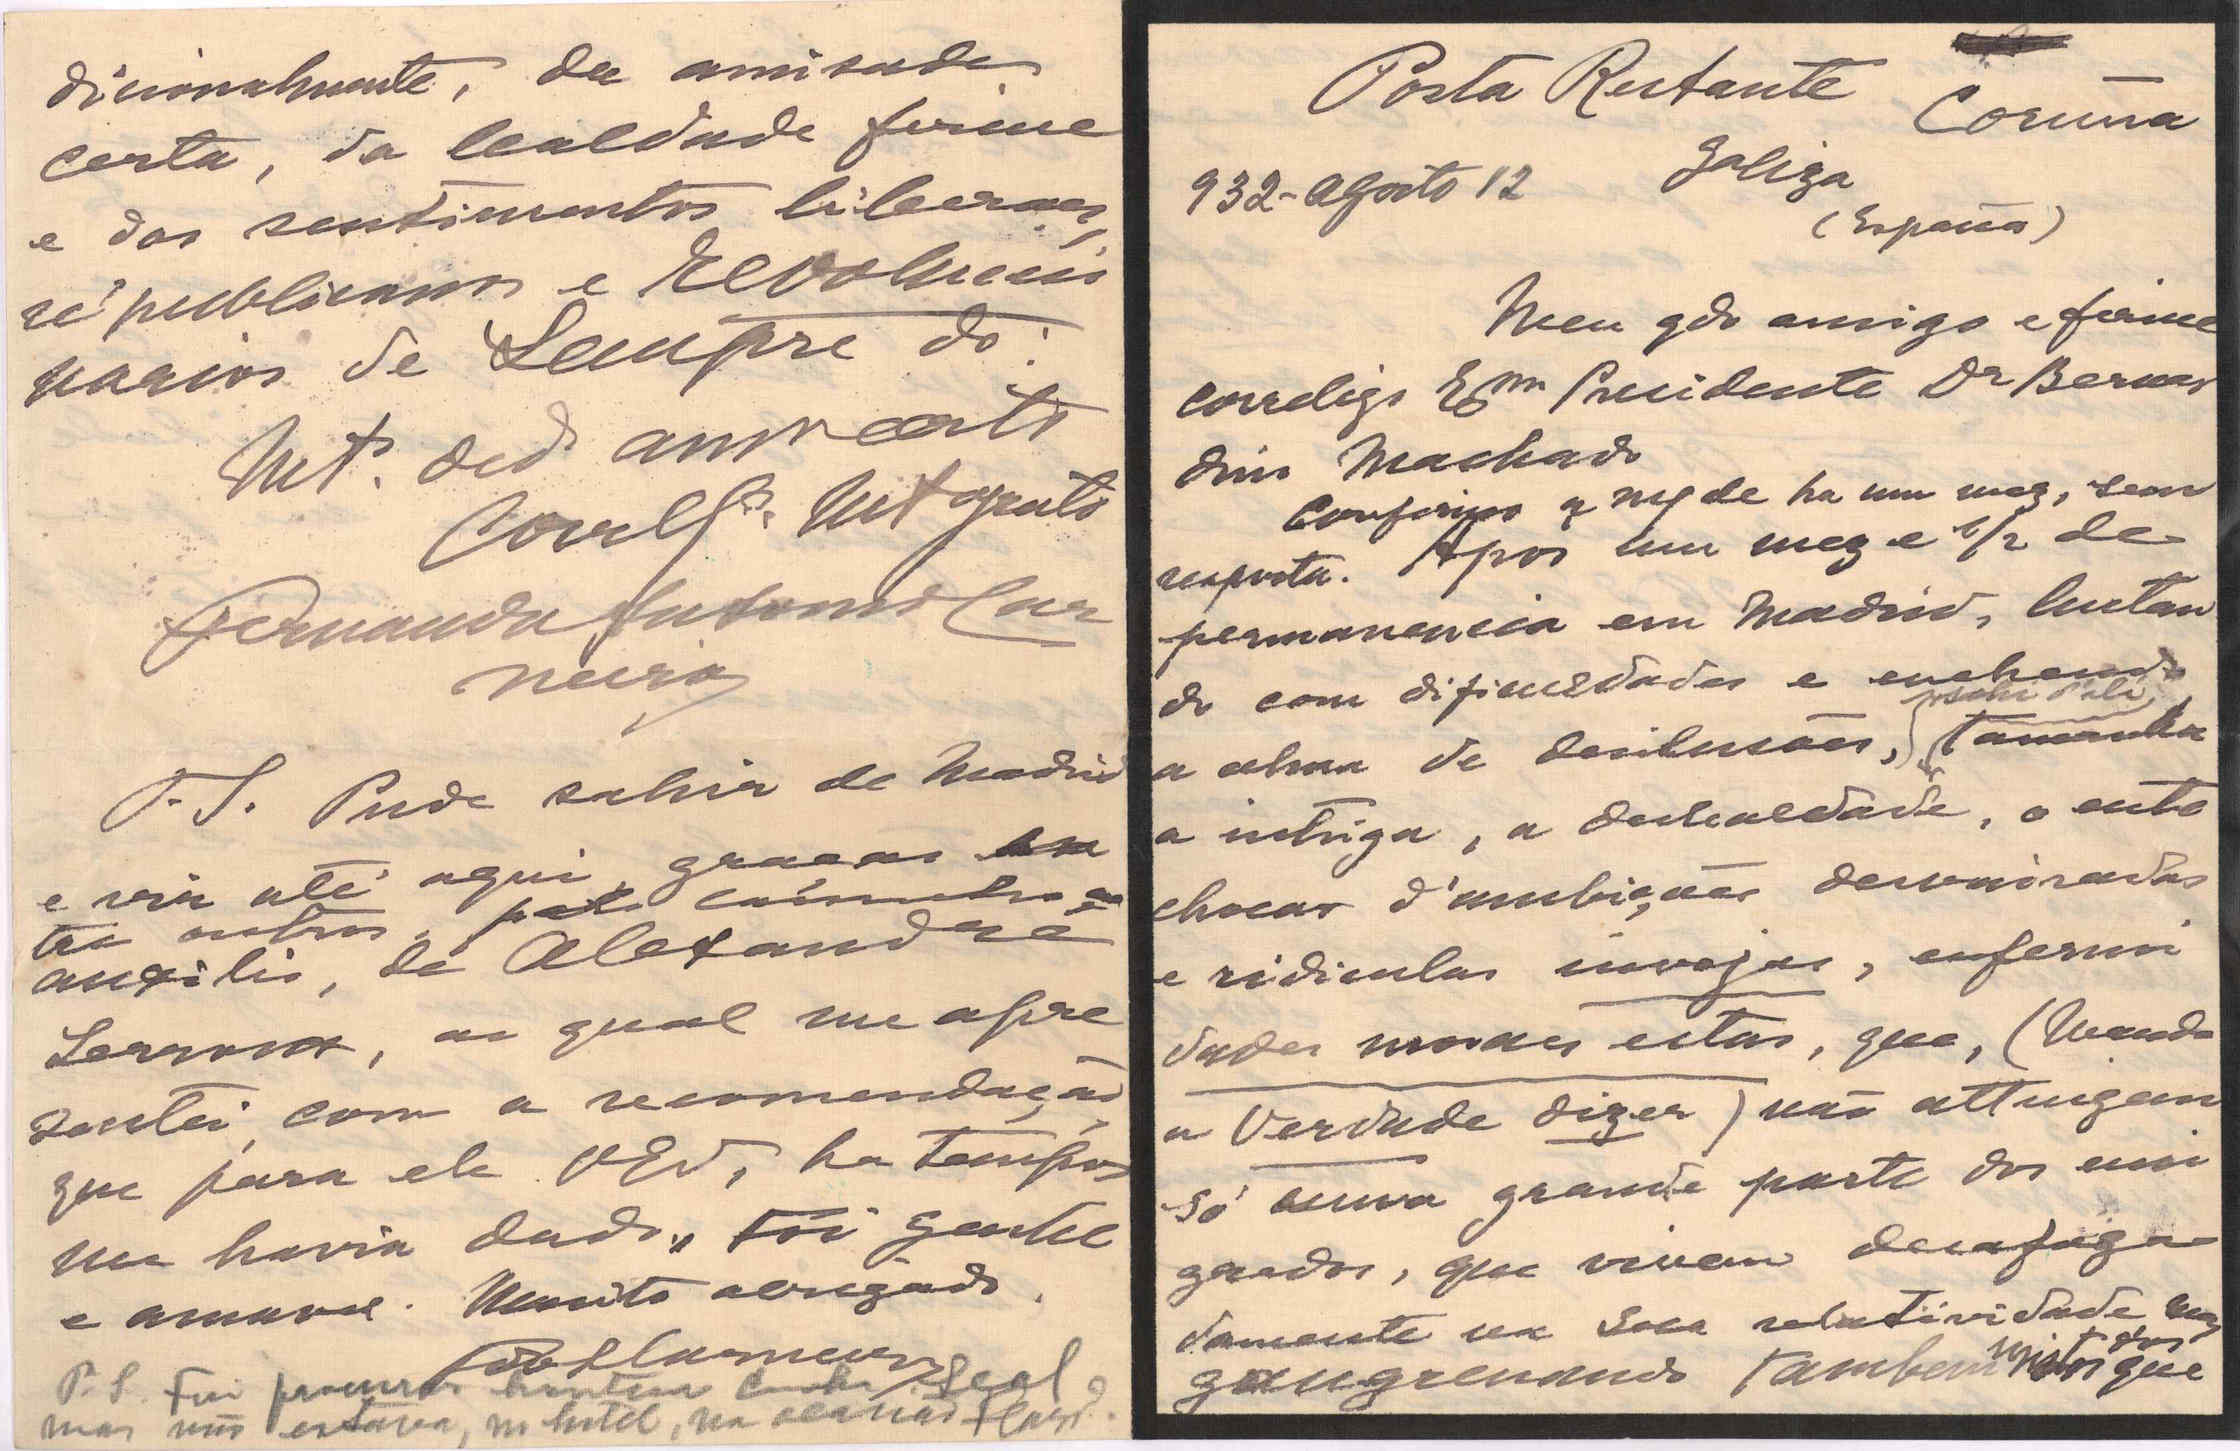 dicionalmente, da amisade
certa, da lealdade firme
e dos sentimentos liberaes,
républicanos e revolucio
narios de sempre do:
Mtº. dedº amº certo
Correlgº. Mtº grato
Fernando Antonio Car
neiro
P.S. Pude sahir de Madrid
e vir até aqui, graças
tre outros, pelo
auxilio, de Alexandre
Lerroux, ao qual me apre
sentei, com a recomendação,
que para ele V Exª, ha tempos
me havia dado, foi gentil
e amavel. Muito obrigado.
P.S. Fui procurar hontem Cunha Leal,
mas não estava, no hotel, na ocasião
Posta Restante
Coruña
932 - Agosto 12
Galiza
(España)
Meu qdo amigo e firme
correligº Exmº Presidente Dr Bernar
dino Machado
Confirmo a mª de ha um mez, sem
resposta. Apos um mez e 1/2 de
permanencia em Madrid, lutan
do com dificuldades e enchendo
a alma de desilusões, tamanha
a intriga, a deslealdade, o entre
chocar d'ambições desvairadas
e ridiculas invejas, enfermi
dades moraes estas, que, (Manda
a Verdade dizer) não attingem
só uma grande parte dos emi
grados, que vivem desafoga
damente na sua relatividade, mas
gangrenando tambem que